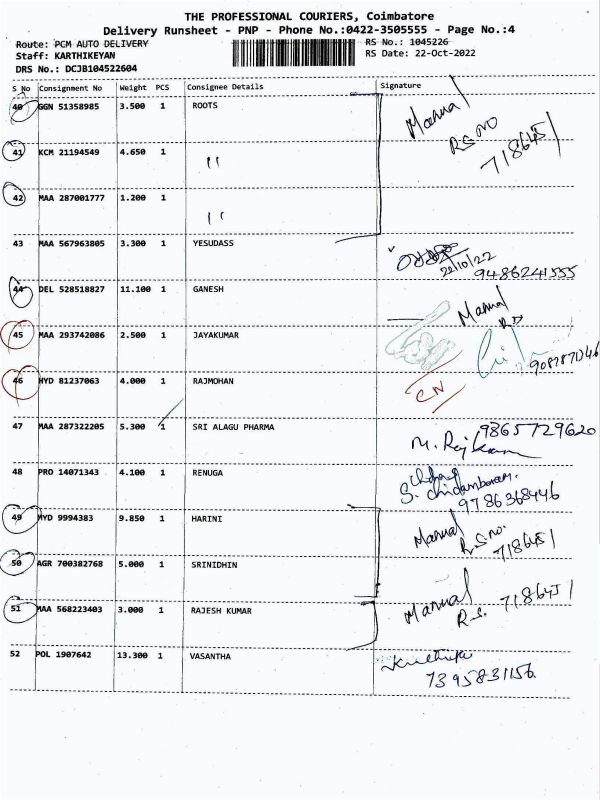 THE PROFESSIONAL COURIERS, Coimbatore
Delivery Runsheet - PNP - Phone No.:0422-3505555 - Page No.:4
Route: PCM AUTO DELIVERY RS No.: 1045226
Staff: KARTHIKEYAN RS Date: 22-Oct-2022
DRS No.: DCJB104522604
S No Consignment No Weight PCS Consignee Details Signature
40 GGN 51358985 3.500 1 ROOTS Manual
RS NO
7186451
41 KCM 21194549 4.650 1 "
42 MAA 287001777 1.200 1 "
43 MAA 567963805 3.300 1 YESUDASS
22/10/22
9486241555
44 DEL 528518827 11.100 1 GANESH Manual
45 MAA 293742086 2.500 1 JAYAKUMAR
46 HYD 81237063 4.000 1 RAJMOHAN CN
47 MAA 287322205 5.300 1 SRI ALAGU PHARMA 9865729620
48 PRO 14071343 4.100 1 RENUGA
S. Chidambaram.
9786368446
49 HYD 9994383 9.850 1 HARINI Manual
R.S.no.
7186451
50 AGR 700382768 5.000 1 SRINIDHIN
51 MAA 568223403 3.000 1 RAJESH KUMAR Manual
R.S. 7186451
52 POL 1907642 13.300 1 VASANTHA
7395831156